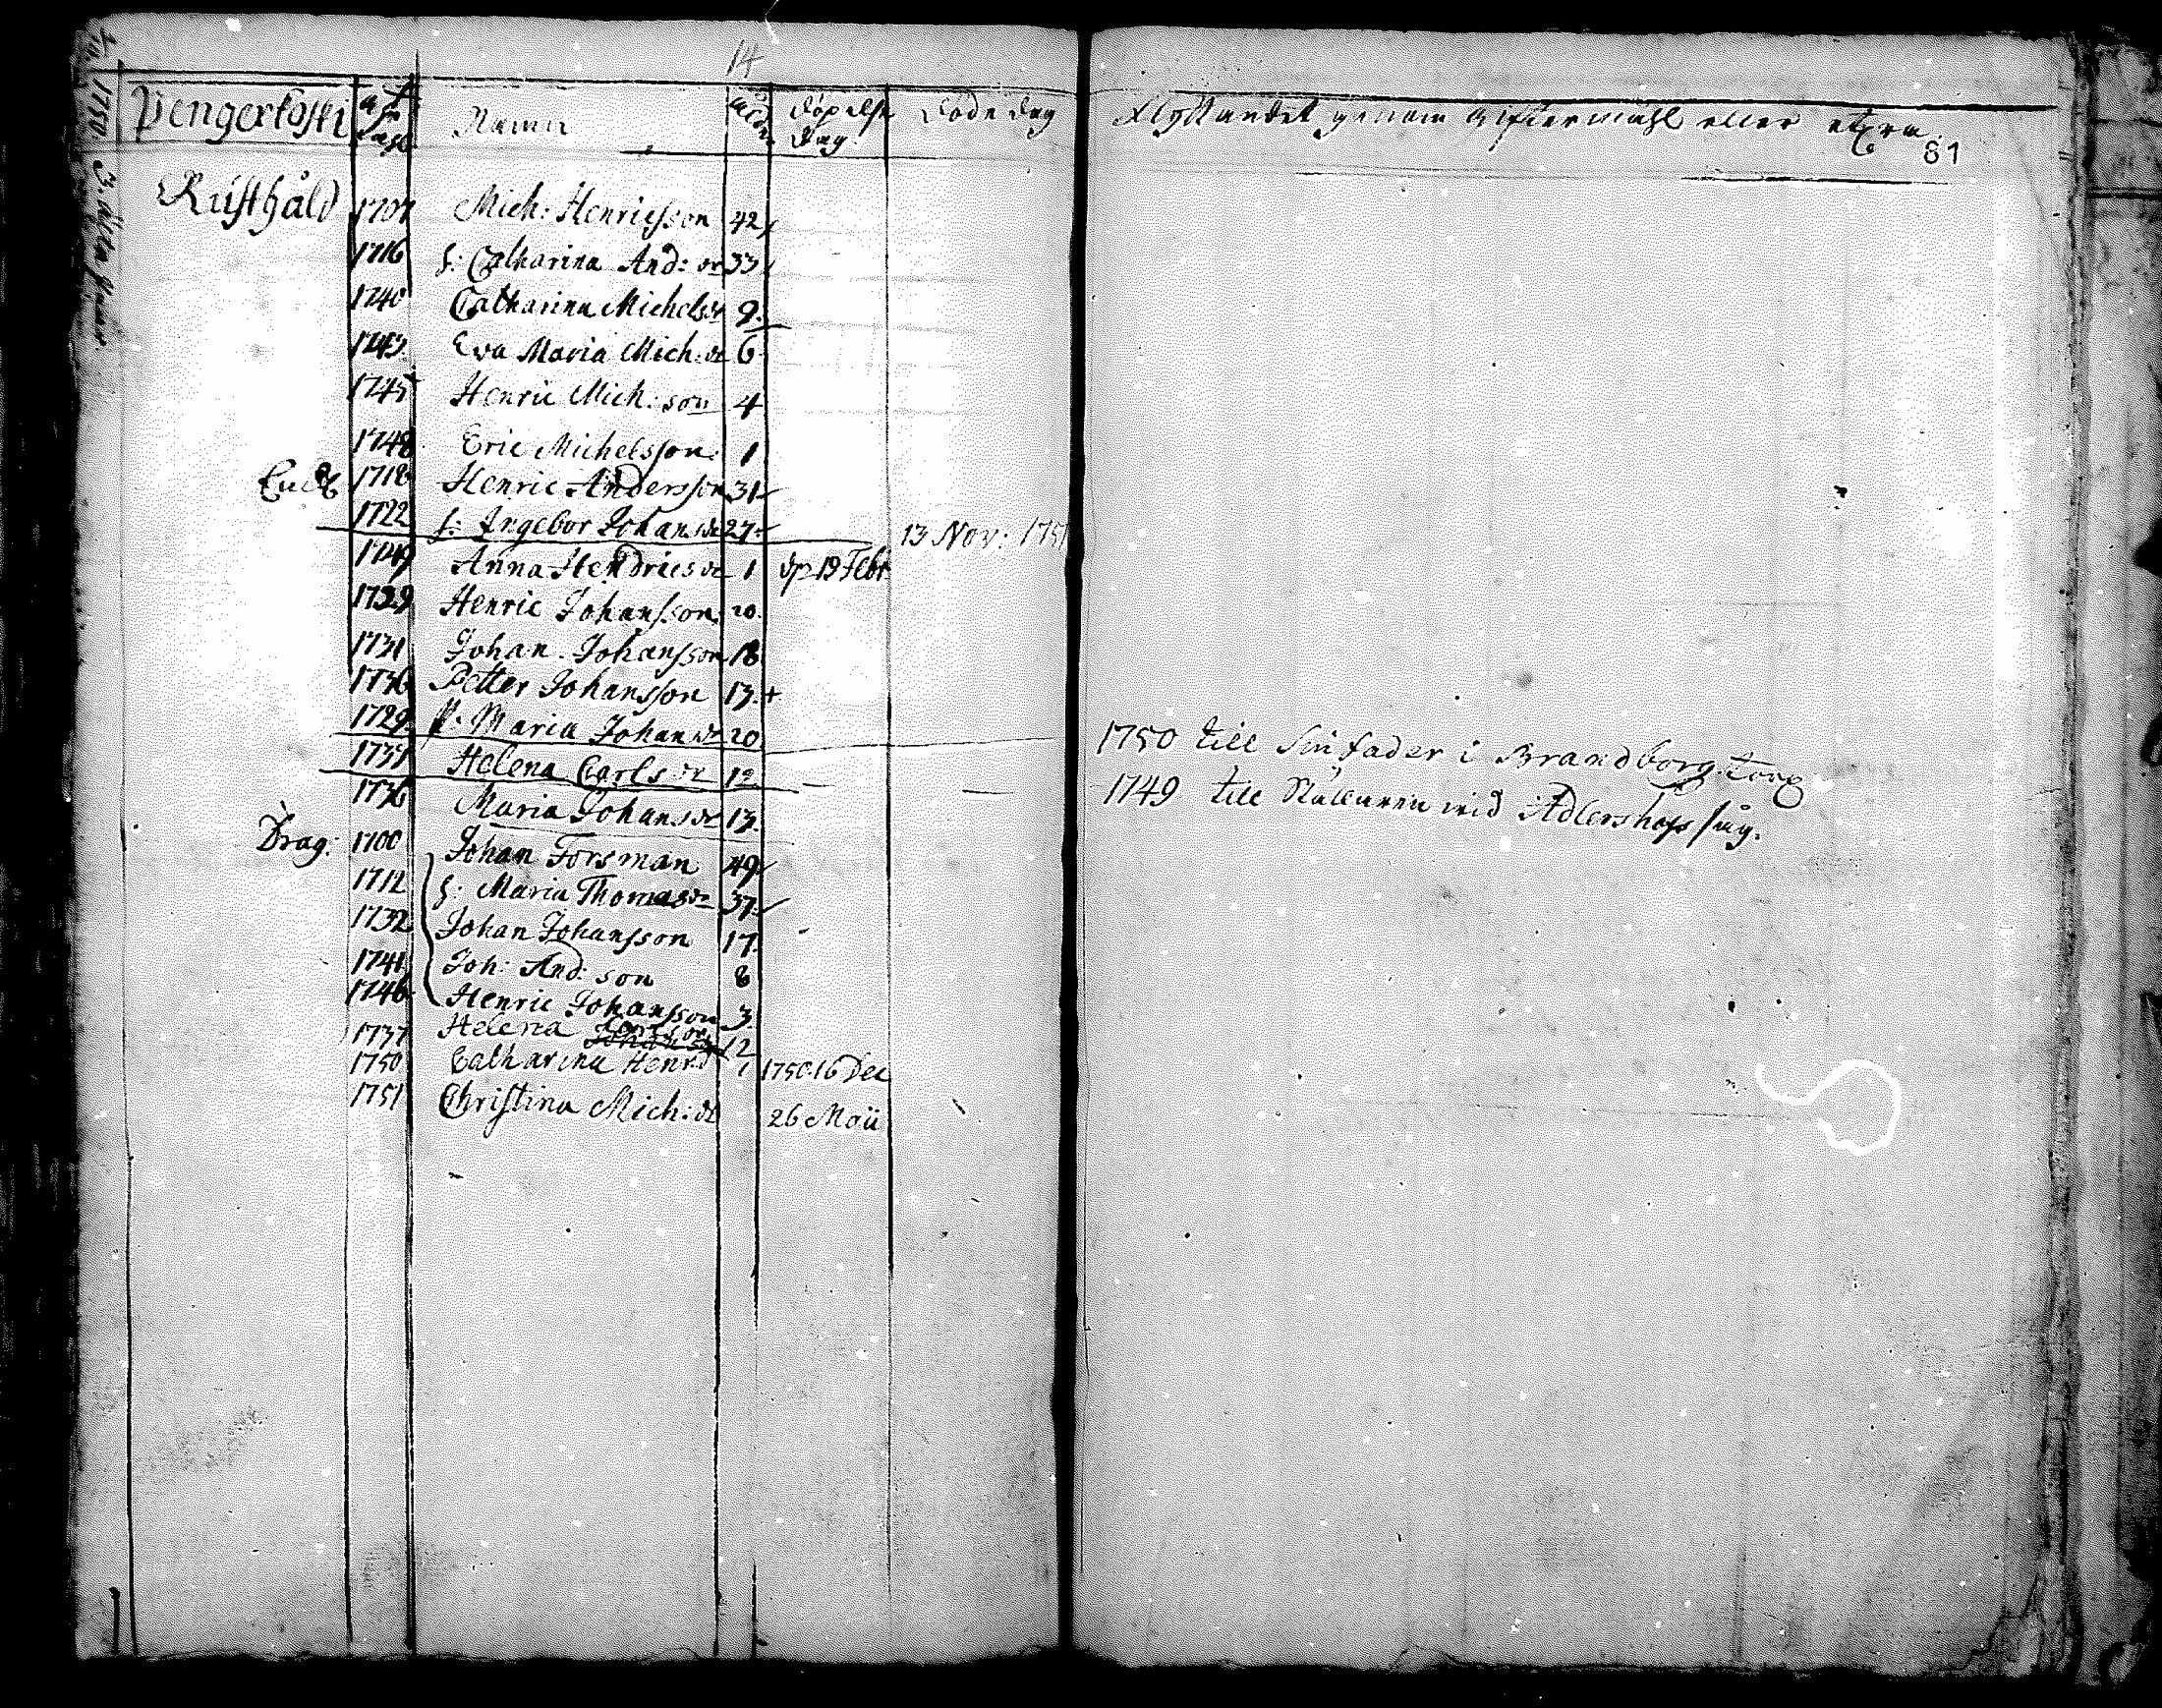 14
Pengerkoski Namn Åldr. Döpelse dag Döde dag Flyttandet genom Giftermåhl eller etxra.
81
Rusthåld 1707 Mich: Henricsson 42
1716 h: Catharina And: dr 33
1740 Catharina Michelsdr 9.
1743 Eva Maria Mich: dr 6
1745 Henric Mich: son 4
1748 Eric Michelsson 1
1718 Henric Andersson 31
1722 h: Ingebor Johansdr 27 13 Nov: 1751
1749 Anna Hendricsdr 1 dp 19 Febr
1729 Henric Johansson 20.
1731 Johan Johansson 18
1736 Petter Johansson 13 +
1729 P. Maria Johansdr 20 1750 till sin fader i Brandborg torp
1737 Helena Carlsdr 12 1749 till wid Adlershofs såg.
1736 Maria Johansdr 13.
Drag: 1700 Johan Forsman 49
1712 h: Maria Thomasdr 37
1732 Johan Johansson 17
1741 Joh: And: son 8
1746 Henric Johansson 3
1737 Helena 12
1750 Catharina Henr:d 1 1750 16 Dec
1751 Christina Mich: dr 26 Maii
1750